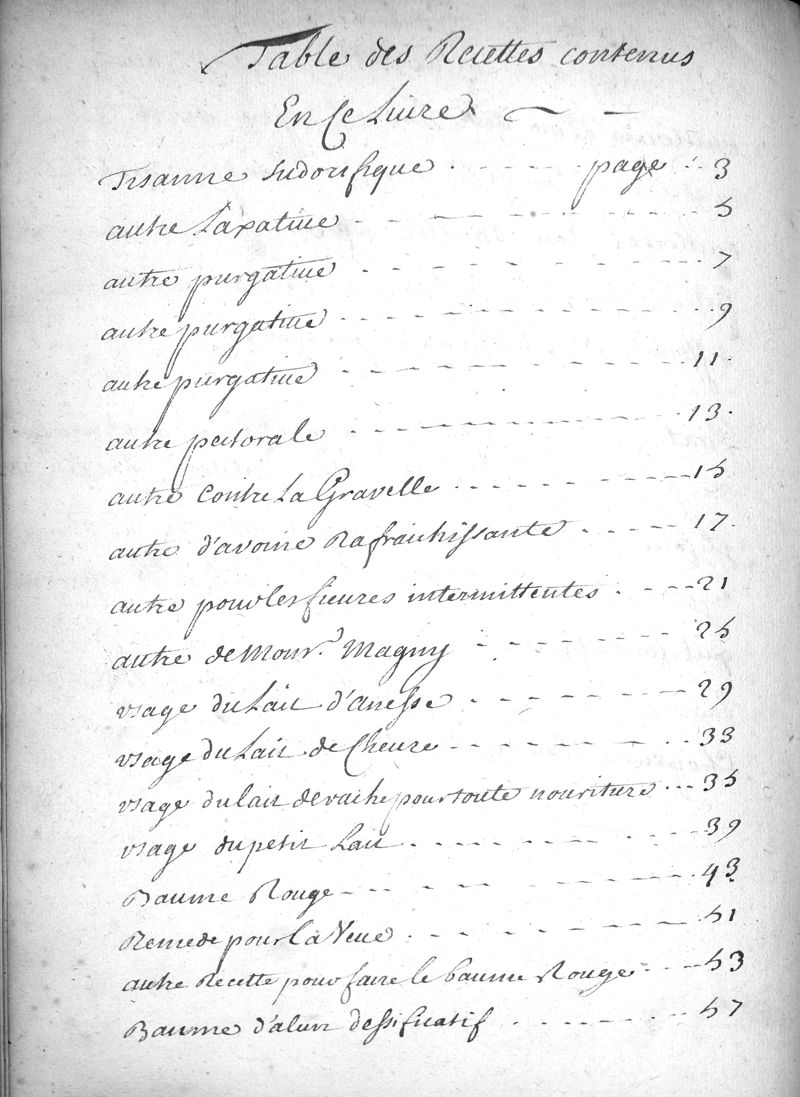 Table des Recettes contenus
En Ce Livre
Tisanne sudorifique page 3
autre Laxative 5
autre purgative 7
autre purgative 9
autre purgative 11
autre pectorale 13
autre Contre La Gravelle 15
autre d'avoine Rafraichissante 17
autre pour les fieures intermittentes 21
autre de Monr. Magny 25
usage du Lait d'anesse 29
usage du Lait de Cheure 33
usage du lait de vache pour toute nouriture 35
usage du petit Lait 39
Baume Rouge 43
Remede pour la Veue 51
autre Recette pour faire le baume Rouge 53
Baume d'alun dessificatif 57